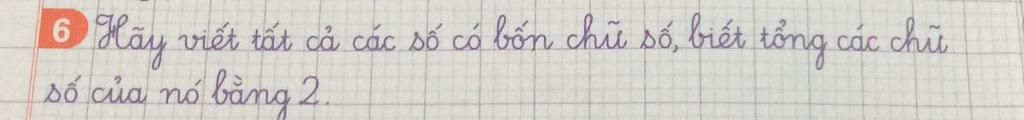 6 Hãy viết tất cả các số có bốn chữ số, biết tổng các chữ
số của nó bằng 2.